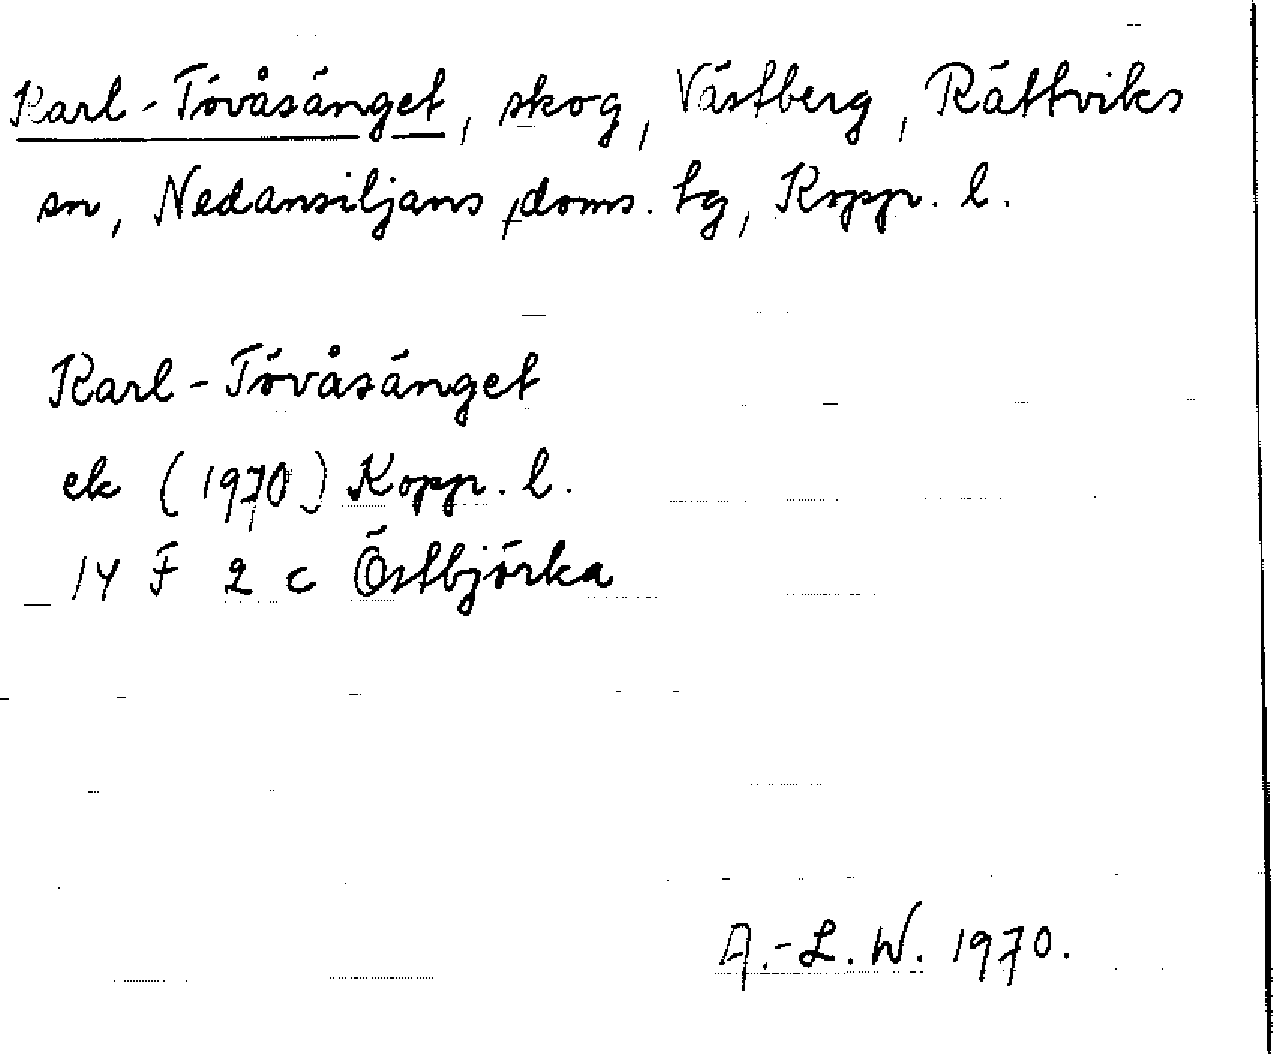 Karl-Tövåsänget, skog, Västberg, Rättviks
sn, Nedansiljans doms. tg, Kopp. l.
Karl-Tövåsänget
ek (1970) Kopp. l.
14 F 2 c Östbjörka
A.-L. W. 1970.